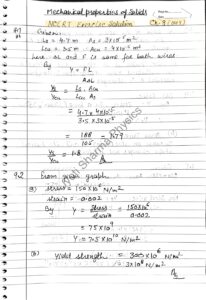 Mechanical properties of Solids
NCERT Exercise Solution Ch. 9 (XI)
9.1 Given:
Ls = 4.7 m As = 3×10⁻⁵ m²
Lcu = 3.5 m Acu = 4×10⁻⁵ m²
here ΔL and F is same for both wires
By Y = FL
AΔL
Ys = Ls . Acu
Ycu Lcu As
= 4.7 × 4×10⁻⁵
3.5 3×10⁻⁵
= 188 = 1.79
105
Ys = 1.8
Ycu
9.2 From given graph
(a) stress = 150×10⁶ N/m²
strain = 0.002
By Y = Stress = 150×10⁶
strain 0.002
= 75×10⁹
Y = 7.5×10¹⁰ N/m²
(b) Yield strength = 300×10⁶ N/m²
= 3×10⁸ N/m²
Sharma Physics